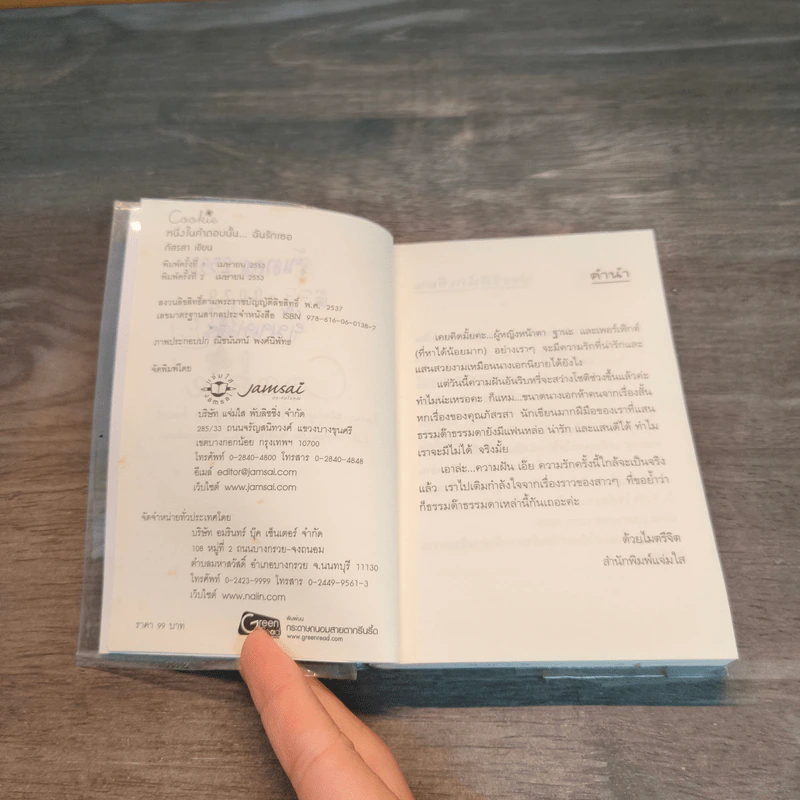 Cookie
หนึ่งในคำตอบนั้น... ฉันรักเธอ
ภัสรสา เขียน
พิมพ์ครั้งที่ 1 เมษายน 2553
พิมพ์ครั้งที่ 2 เมษายน 2553
สงวนลิขสิทธิ์ตามพระราชบัญญัติลิขสิทธิ์ พ.ศ. 2537
เลขมาตรฐานสากลประจำหนังสือ ISBN 978-616-06-0138-7
ภาพประกอบปก ณิชนันทน์ พงศ์นิพัทธ์
จัดพิมพ์โดย
แจ่มใส
JAMSAI
Jamsai
บริษัท แจ่มใส พับลิชชิ่ง จำกัด
285/33 ถนนจรัญสนิทวงศ์ แขวงบางขุนศรี
เขตบางกอกน้อย กรุงเทพฯ 10700
โทรศัพท์ 0-2840-4800 โทรสาร 0-2840-4848
อีเมล์ editor@jamsai.com
เว็บไซต์ www.jamsai.com
จัดจำหน่ายทั่วประเทศโดย
บริษัท อมรินทร์ บุ๊ค เซ็นเตอร์ จำกัด
108 หมู่ที่ 2 ถนนบางกรวย-จงถนอม
ตำบลมหาสวัสดิ์ อำเภอบางกรวย จ.นนทบุรี 11130
โทรศัพท์ 0-2423-9999 โทรสาร 0-2449-9561-3
เว็บไซต์ www.naiin.com
ราคา 99 บาท
Green
พิมพ์บน
กระดาษถนอมสายตากรีนรี้ด
www.greenread.com
คำนำ
เคยคิดมั้ยคะ...ผู้หญิงหน้าตา ฐานะ และเพอร์เฟ็กต์
(ที่หาได้น้อยมาก) อย่างเราๆ จะมีความรักที่น่ารักและ
แสนสวยงามเหมือนนางเอกนิยายได้ยังไง
แต่วันนี้ความฝันอันริบหรี่จะสว่างโชติช่วงขึ้นแล้วค่ะ
ทำไมน่ะเหรอคะ ก็แหม...ขนาดนางเอกห้าคนจากเรื่องสั้น
หกเรื่องของคุณภัสรสา นักเขียนมากฝีมือของเราที่แสน
ธรรมด๊าธรรมดายังมีแฟนหล่อ น่ารัก และแสนดีได้ ทำไม
เราจะมีไม่ได้ จริงมั้ย
เอาล่ะ...ความฝัน เอ๊ย ความรักครั้งนี้ใกล้จะเป็นจริง
แล้ว เราไปเติมกำลังใจจากเรื่องราวของสาวๆ ที่ขอย้ำว่า
ก็ธรรมด๊าธรรมดาเหล่านี้กันเถอะค่ะ
ด้วยไมตรีจิต
สำนักพิมพ์แจ่มใส